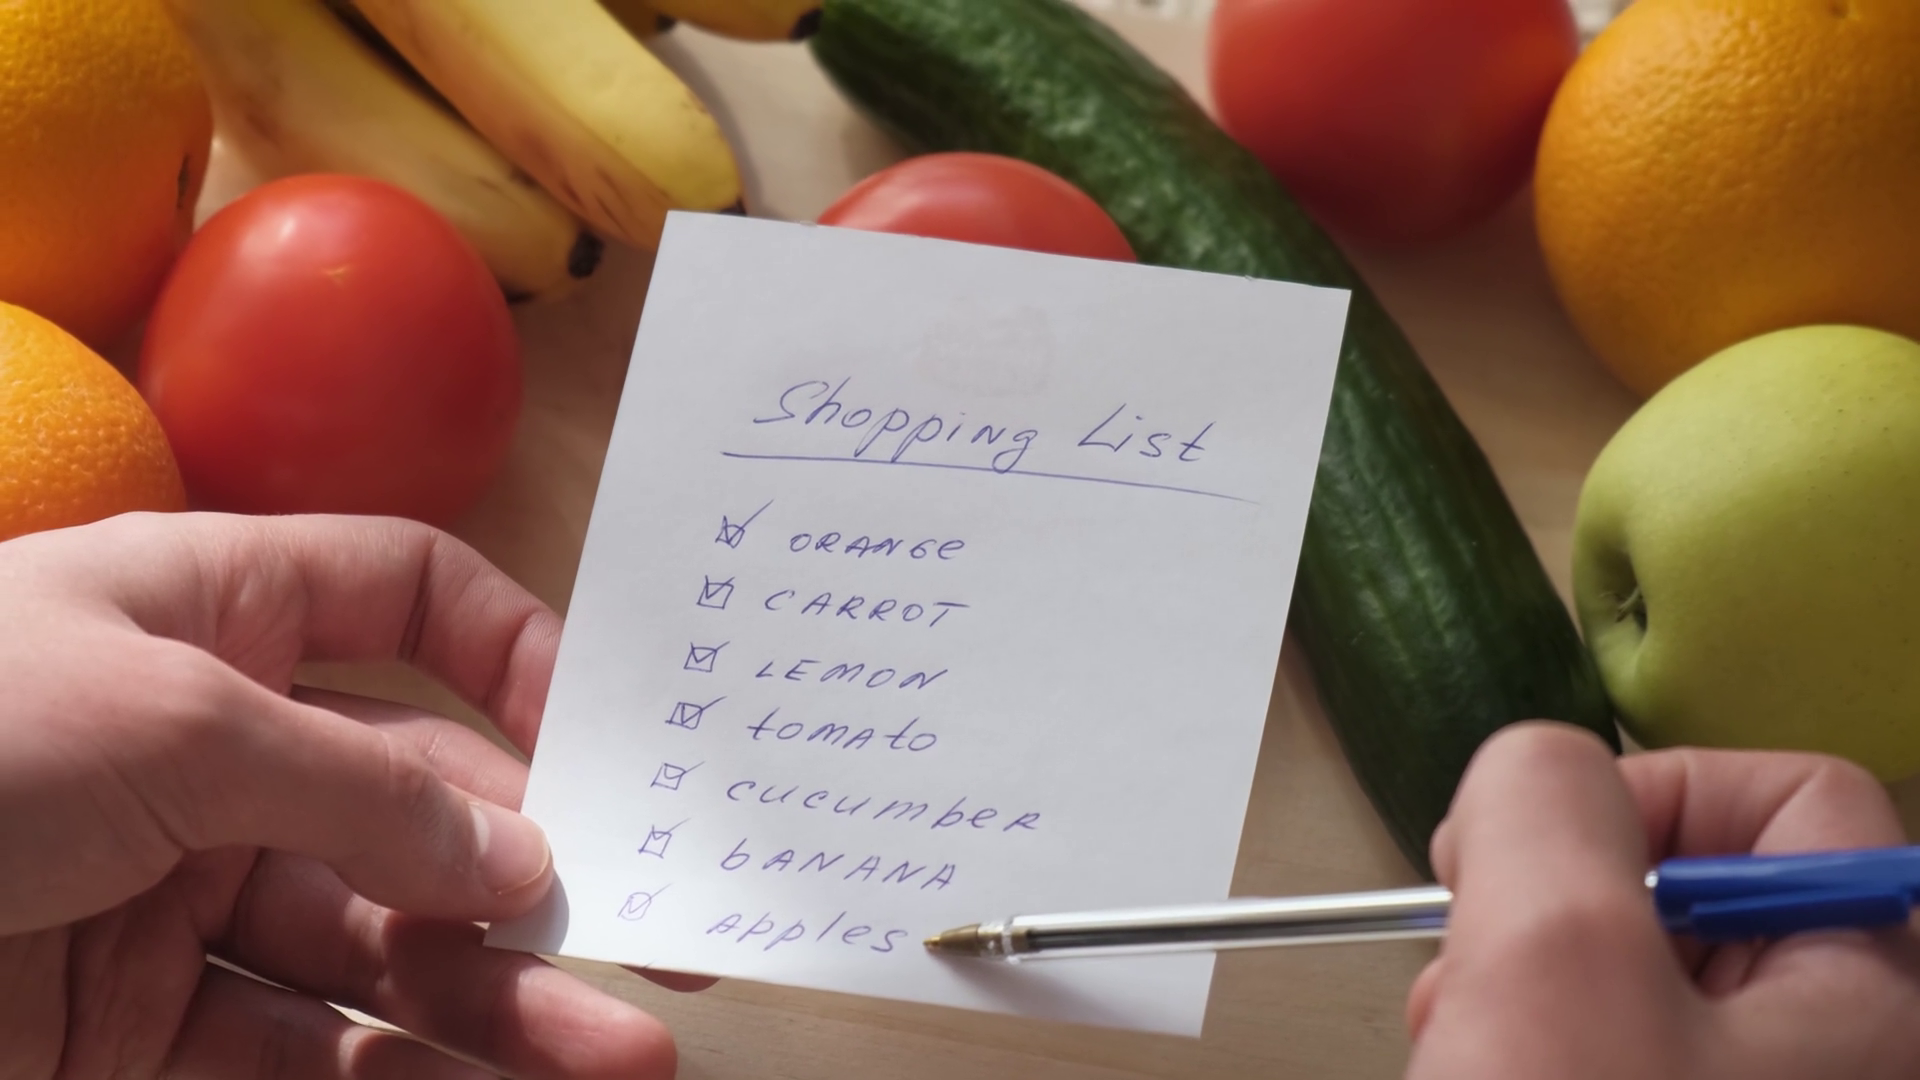 Shopping List
ORANGe
CARROT
LEMON
tomato
cucumbeR
bANANA
Apples